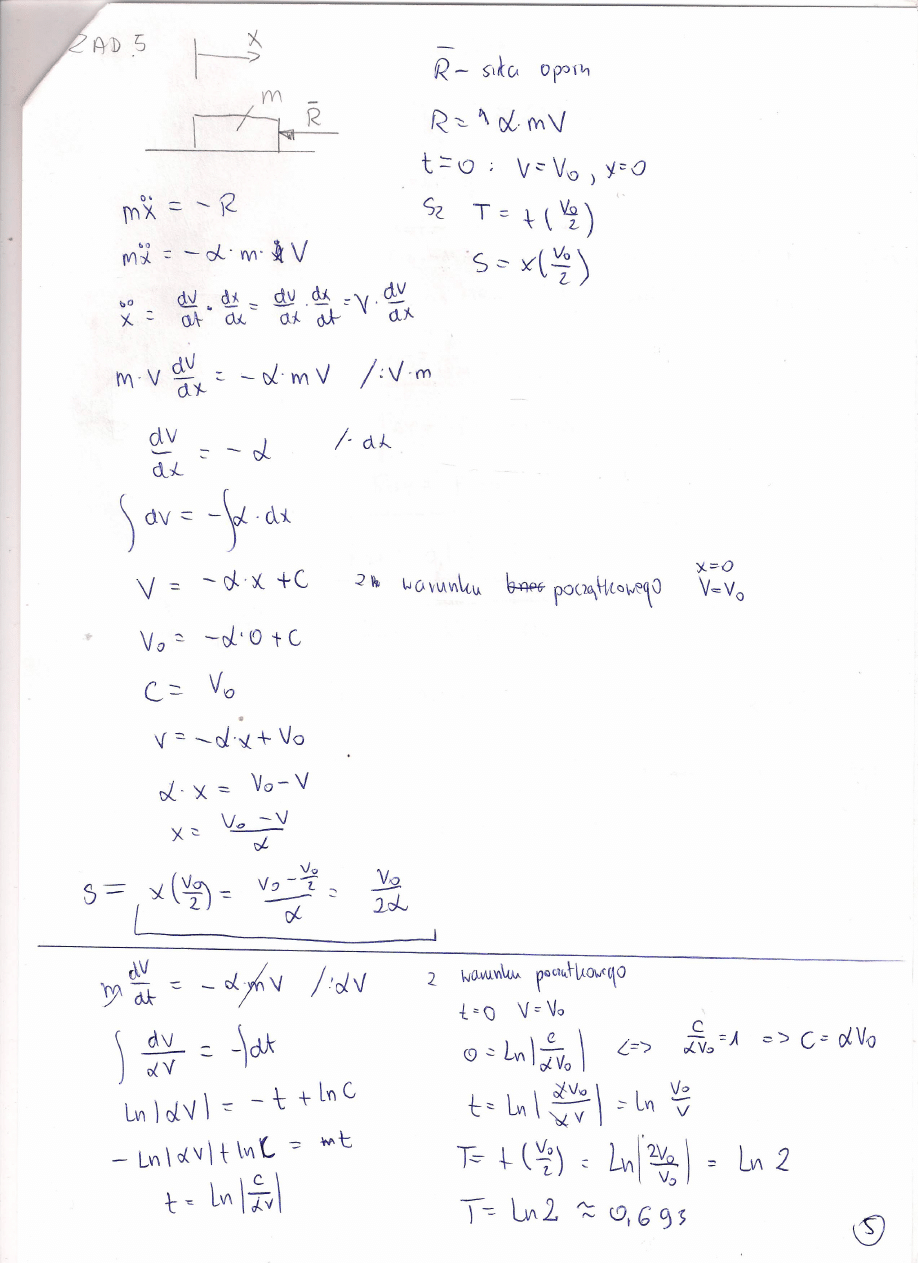 ZAD 5
x
m
R̄
R̄ - siła oporu
R = α·mV
t=0 : V=V₀, x=0
Sz T = t(V₀/2)
S = x(V₀/2)
mẍ = -R
mẍ = -α·m·V
ẍ = dV/dt · dx/dx = dV/dx · dx/dt = V· dV/dx
m·V dV/dx = -α·mV /:V·m
dV/dx = -α /· dx
∫dV = -∫α·dx
V = -α·x + C z warunku początkowego x=0 V=V₀
V₀ = -α·0 + C
C = V₀
V = -α·x + V₀
α·x = V₀-V
x = (V₀-V)/α
S = x(V₀/2) = (V₀ - V₀/2)/α = V₀/2α
m dV/dt = -α·mV /:αV
∫ dV/αV = -∫dt
Ln|αV| = -t + lnC
-Ln|αV| + lnC = mt
t = Ln|C/αV|
z warunku początkowego
t=0 V=V₀
0 = Ln|C/αV₀| <=> C/αV₀ = 1 => C = αV₀
t = Ln|αV₀/αV| = Ln V₀/V
T = t(V₀/2) = Ln|2V₀/V₀| = Ln 2
T = Ln2 ≈ 0,693
5